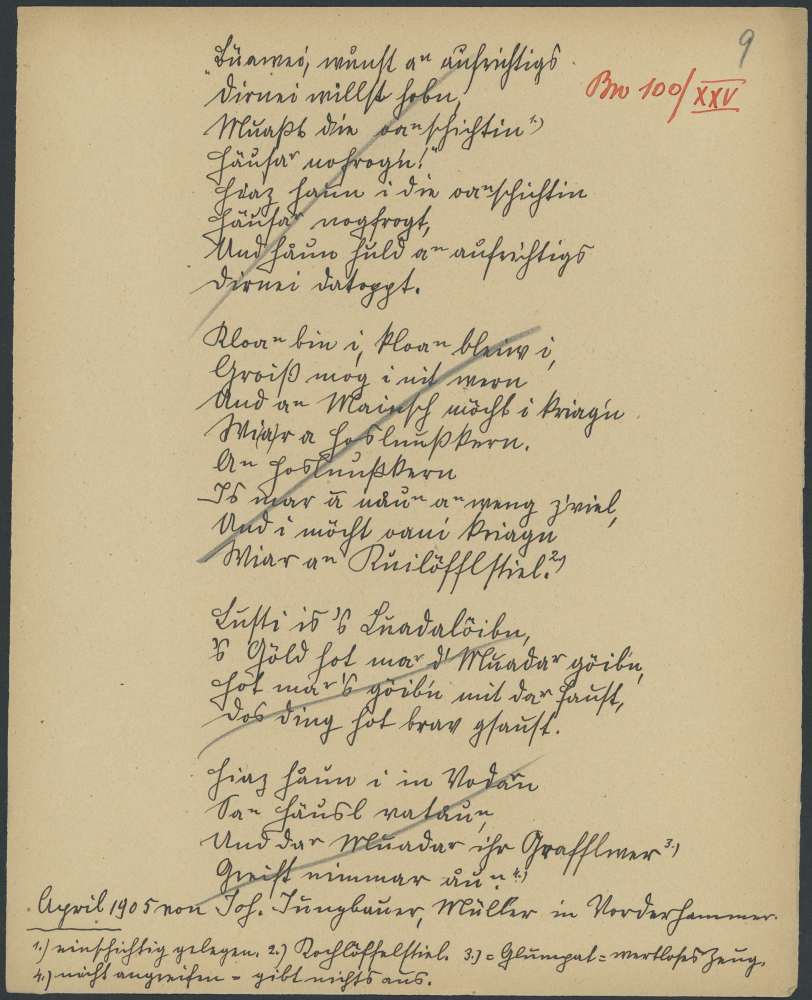 9
Bw 100/XXV
„Büawei, wünst aⁿ aufrichtigs
Dirnei willst hobn,
Muaßt die oaⁿschichtin¹⁾
Häusaʳ nofrogn!“
Hiaz haun i die oaⁿschichtin
Häusaʳ nogfrogt,
Und haun huld aⁿ aufrichtigs
Dirnei datoppt.
Kloaⁿ bin i, kloaⁿ bleiw i,
Groiß mog i nit wern
And aⁿ Mainsch möcht i kriagn
Wi(a)r a Hoslnußkern.
Aⁿ Hoslnußkern
Is mar a nauⁿ aⁿ weng z'viel,
Und i möcht oani kriagn
Wiar aⁿ Kuilöfflstiel.²⁾
Lusti is 's Luadalöibn,
's Göld hot maʳ d' Muadaʳ göibn,
Hot maʳ's göibn mit daʳ Faust,
Dos Ding hot brav gsaust.
Hiaz haun i in Vodan
Saⁿ Häusl vatauⁿ,
Und daʳ Muadar ihr Grafflwer³⁾
Greift nimmar auⁿ.⁴⁾
April 1905 von Joh. Jungbauer, Müller in Vorderhammer.
1.) einschichtig gelegen. 2.) Kochlöffelstiel. 3.) = Glumpat = wertloses Zeug.
4.) nicht angreifen = gibt nichts aus.